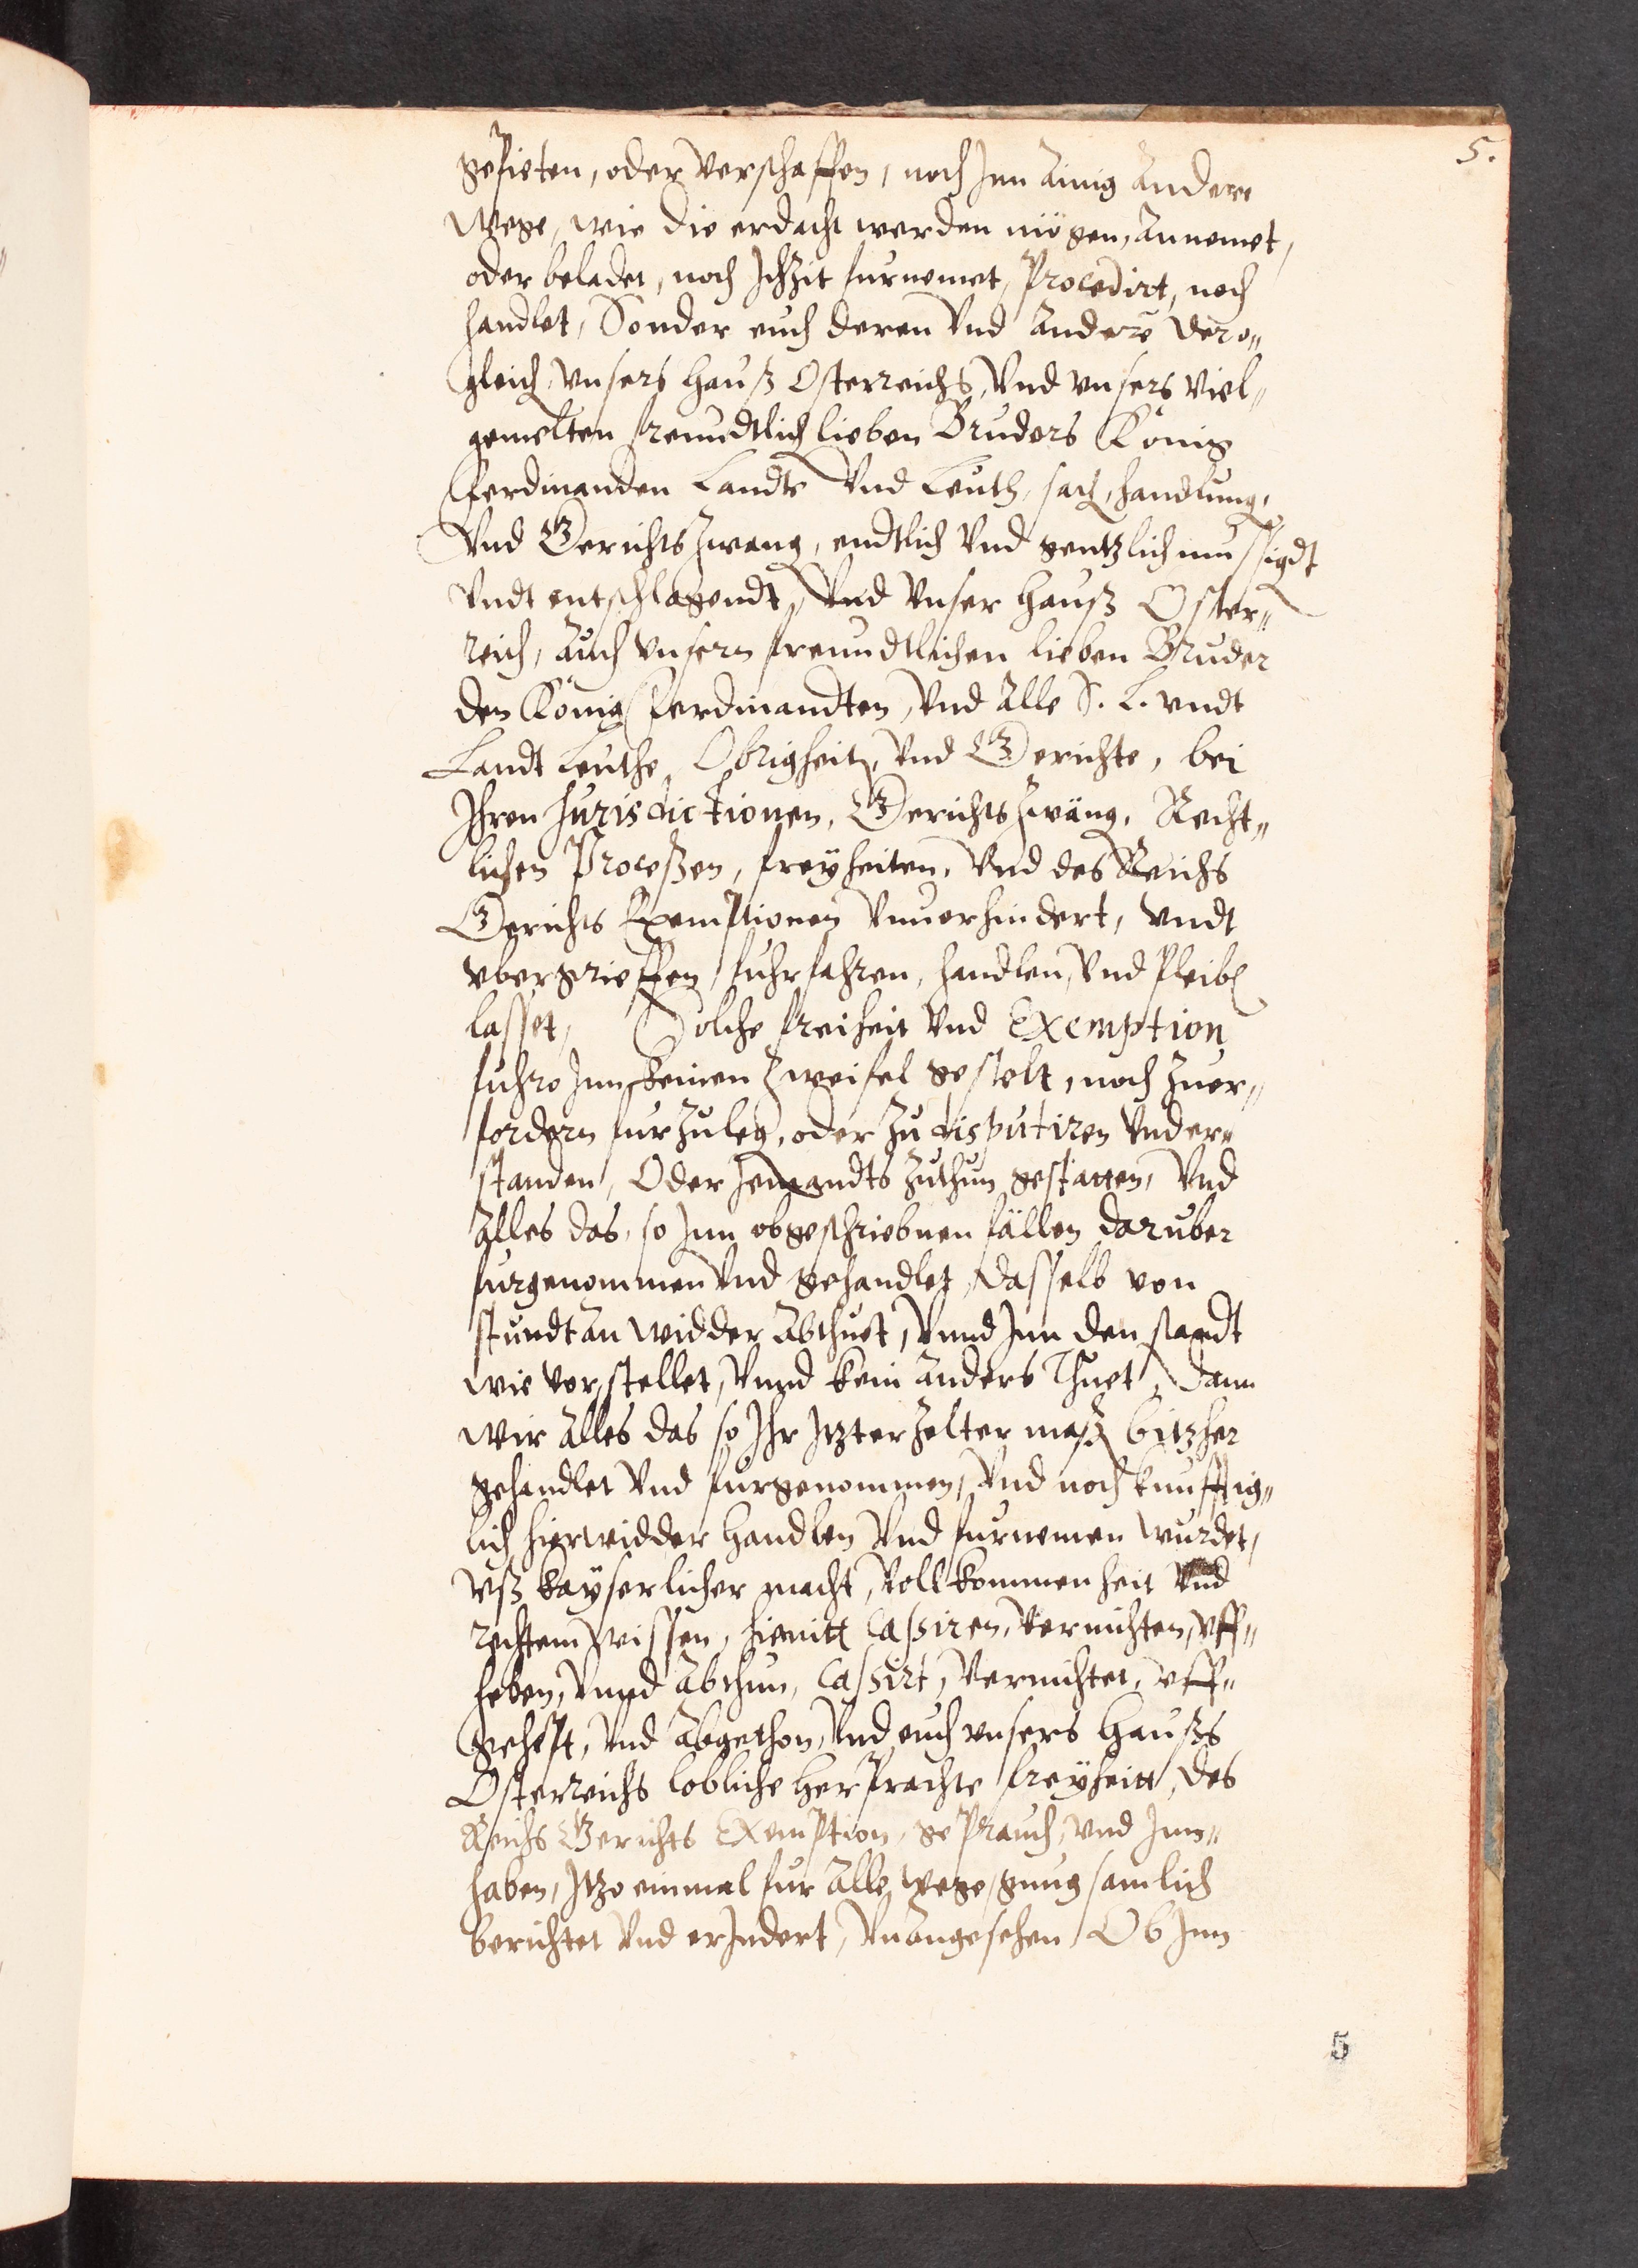 5.
gepieten, oder verschaffen, noch Inn Ainig Andere
wege, wie die erdacht werden mögen, Annemet,
oder beladet, noch Ichzit furnemet, Procedirt, noch
handlet, Sonder euch deren Vnd Andere der o„
gleich, vnsers hauß Osterreichs, Vnd vnsers viel„
gemelten freundtlich lieben Bruders König
Ferdinanden Landt Vnd Leuth, sach, handlung,
Vnd Gerichts zwang, endtlich Vnd gentzlich mussigdt
Vndt entschlagendt, Vnd Vnser hauß Oster„
reich, Auch vnsern freundtlichen lieben Bruder
den König Ferdinandten, Vnd Alle S. L. vndt
Landt Leuthe, Obrigheit, Vnd Gerichte, bei
Ihren Jurisdictionen, Gerichts zwäng, Recht„
lichen Proceßen, freyheiten, Vnd des Reichs
Gerichts Exemptionen Vnuerhindert, vndt
vbergrieffen fuhrfahren, handlen, Vnd Pleiben
lasset, Solche freiheit Vnd Exemption
fuhro Inn keinen zweifel gestelt, noch zuer„
fordern furzuleg, oder zu disputiren Vnder„
standen, Oder Jemandts zuthun gestatten, Vnd
Alles das, so Inn obgeschriebnen fällen daruber
furgenommen Vnd gehandlet, dasselb von
stundt An widder Abthuet, Vnnd Inn den standt
wie vor, stellet, Vnnd kein Anders Thuet, dann
wir Alles das so Ihr Itzterzelter maß bitzher
gehandlet Vnd furgenommen, Vnd noch kunfftig„
lich hierwidder handlen Vnd furnemen wurdet,
vß kayserlicher macht, Vollkommenheit Vnd
rechtem wissen, hiemitt Cassiren, Vernichten, vff„
heben, Vnnd Abthun, Cassirt, Vernichtet, vff„
gehept, Vnd Abgethon, Vnd euch vnsers Haußs
Osterreichs lobliche Her Prachte freyheitt, des
Reichs Gerichts Exemption, gePrauch, vnd Inn„
haben, Itzo einmal fur Alle wege, gnugsamlich
berichtet Vnd erIndert, VnAngesehen Ob Inn
5